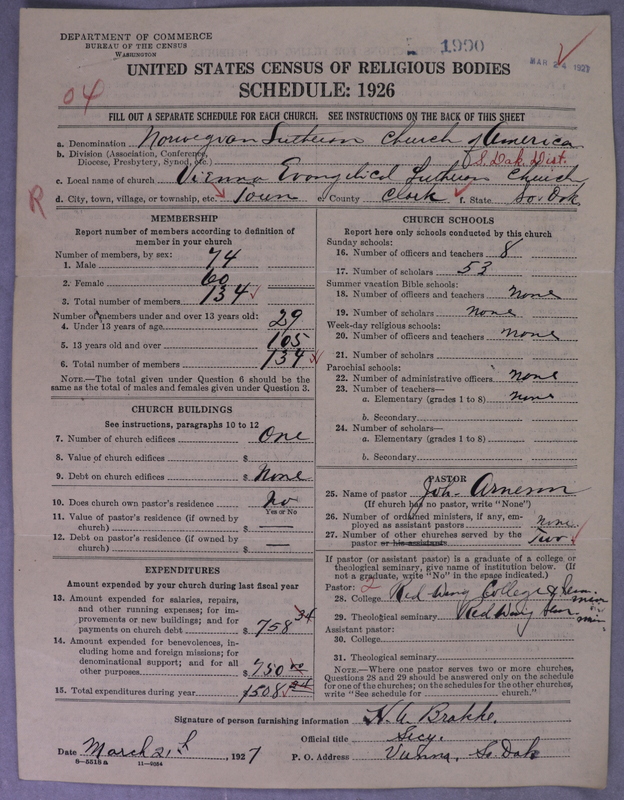 DEPARTMENT OF COMMERCE
BUREAU OF THE CENSUS
WASHINGTON
1990
MAR 24 1927
UNITED STATES CENSUS OF RELIGIOUS BODIES
SCHEDULE: 1926
04
FILL OUT A SEPARATE SCHEDULE FOR EACH CHURCH. SEE INSTRUCTIONS ON THE BACK OF THIS SHEET
a. Denomination Norwegian Lutheran Church of America
b. Division (Association, Conference,
Diocese, Presbytery, Synod, etc.) S. Dak. Dist.
c. Local name of church Vienna Evangelical Lutheran Church
R
d. City, town, village, or township, etc. Town e. County Clark f. State So. Dak
MEMBERSHIP
Report number of members according to definition of
member in your church
Number of members, by sex:
1. Male 74
2. Female 60
3. Total number of members 134
Number of members under and over 13 years old:
4. Under 13 years of age 29
5. 13 years old and over 105
6. Total number of members 134
NOTE.—The total given under Question 6 should be the
same as the total of males and females given under Question 3.
CHURCH BUILDINGS
See instructions, paragraphs 10 to 12
7. Number of church edifices One
8. Value of church edifices $
9. Debt on church edifices $ None
10. Does church own pastor's residence No
Yes or No
11. Value of pastor's residence (if owned by
church) $ —
12. Debt on pastor's residence (if owned by
church) $ —
EXPENDITURES
Amount expended by your church during last fiscal year
13. Amount expended for salaries, repairs,
and other running expenses; for im-
provements or new buildings; and for
payments on church debt $ 758 34
14. Amount expended for benevolences, in-
cluding home and foreign missions; for
denominational support; and for all
other purposes $ 750 00
15. Total expenditures during year 1508 34
CHURCH SCHOOLS
Report here only schools conducted by this church
Sunday schools:
16. Number of officers and teachers 8
17. Number of scholars 53
Summer vacation Bible schools:
18. Number of officers and teachers none
19. Number of scholars none
Week-day religious schools:
20. Number of officers and teachers none
21. Number of scholars
Parochial schools:
22. Number of administrative officers none
23. Number of teachers—
a. Elementary (grades 1 to 8) none
b. Secondary
24. Number of scholars—
a. Elementary (grades 1 to 8)
b. Secondary
PASTOR
25. Name of pastor Joh. Arneson
(If church has no pastor, write "None")
26. Number of ordained ministers, if any, em-
ployed as assistant pastors none
27. Number of other churches served by the
pastor or his assistants Two
If pastor (or assistant pastor) is a graduate of a college or
theological seminary, give name of institution below. (If
not a graduate, write "No" in the space indicated.)
Pastor:
28. College Red Wing College & Sem. minn
29. Theological seminary Red Wing Sem minn
Assistant pastor:
30. College
31. Theological seminary
NOTE.—Where one pastor serves two or more churches,
Questions 28 and 29 should be answered only on the schedule
for one of the churches; on the schedules for the other churches,
write "See schedule for church."
Signature of person furnishing information H. A. Brakke.
Official title Secy.
Date March 21, 1927 P. O. Address Vienna, So. Dak
8—5518a 11—9054